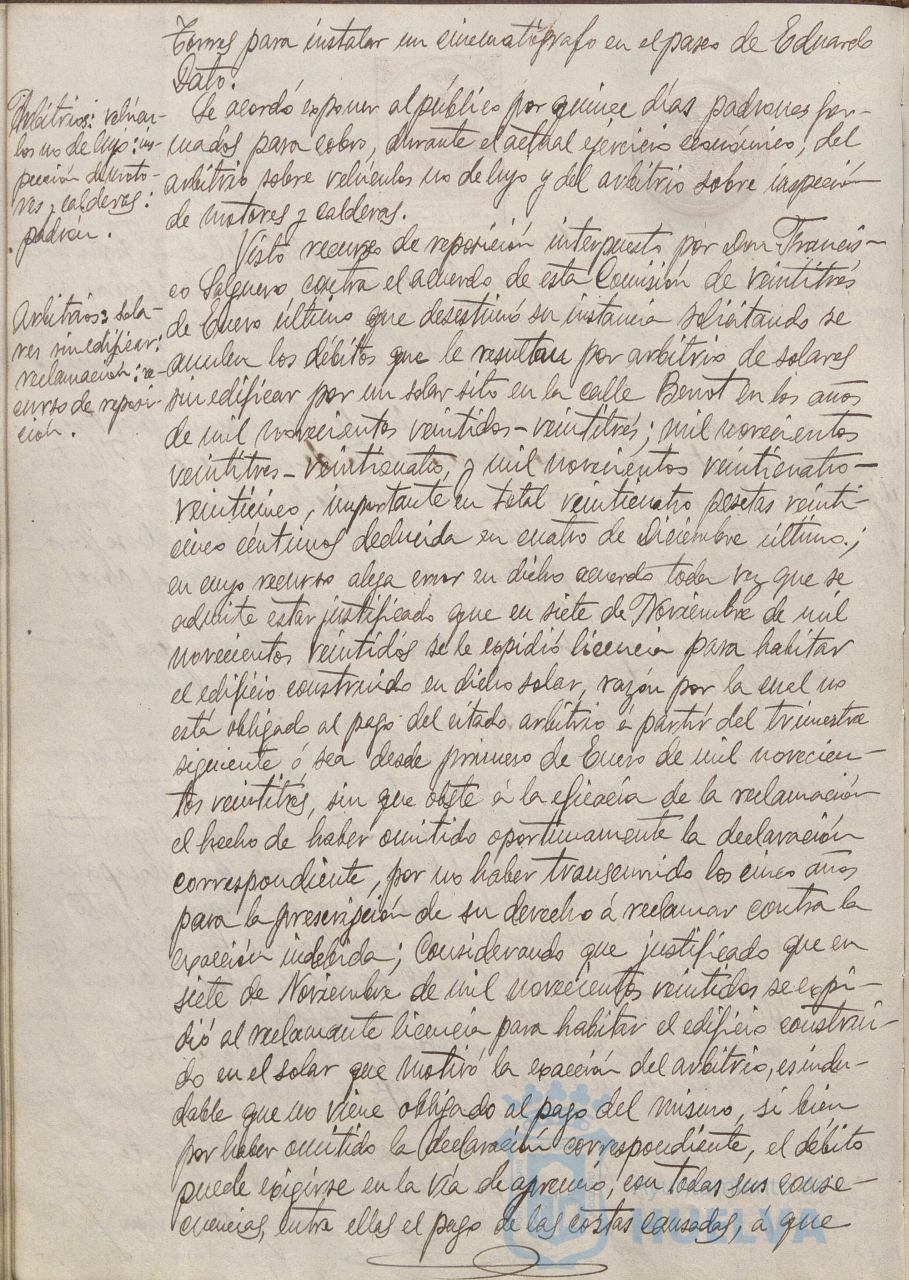 Torres para instalar un cinematógrafo en el paseo de Eduardo
Dato.
Arbitrios: vehícu-
los no de lujo: ins-
pección de moto-
res y calderas:
padrón.
Se acordó exponer al público por quince días padrones for-
mados para cobro, durante el actual ejercicio económico, del
arbitrio sobre vehículos no de lujo y del arbitrio sobre inspeción
de motores y calderas.
Arbitrios: sola-
res sin edificar:
reclamación: re-
curso de reposi-
ción.
Visto recurso de reposición interpuesto por Don Francis-
co Salguero contra el acuerdo de esta Comisión de veintitrés
de Enero último que desestimó su instancia solicitando se
anulen los débitos que le resultan por arbitrio de solares
sin edificar por un solar sito en la calle Benot en los años
de mil novecientos veintidos-veintitrés; mil novecientos
veintitres-veinticuatro, y mil novecientos veinticuatro-
veinticinco, importante en total veinticuatro pesetas veinti-
cinco céntimos deducida en cuatro de Diciembre último;
en cuyo recurso alega error en dicho acuerdo toda vez que se
admite estar justificado que en siete de Noviembre de mil
novecientos veintidós se le expidió licencia para habitar
el edificio construido en dicho solar, razón por la cual no
está obligado al pago del citado arbitrio á partir del trimestre
siguiente ó sea desde primero de Enero de mil novecien-
tos veintitrés, sin que obste á la eficacia de la reclamación
el hecho de haber omitido oportunamente la declaración
correspondiente, por no haber transcurrido los cinco años
para la prescripción de su derecho á reclamar contra la
exacción indebida; Considerando que justificado que en
siete de Noviembre de mil novecientos veintidos se expi-
dió al reclamante licencia para habitar el edificio construi-
do en el solar que motivó la exacción del arbitrio, es indu-
dable que no viene obligado al pago del mismo, si bien
por haber omitido la declaración correspondiente, el débito
puede exigirse en la vía de apremio, con todas sus conse-
cuencias, entre ellas el pago de las costas causadas, a que
HUELVA